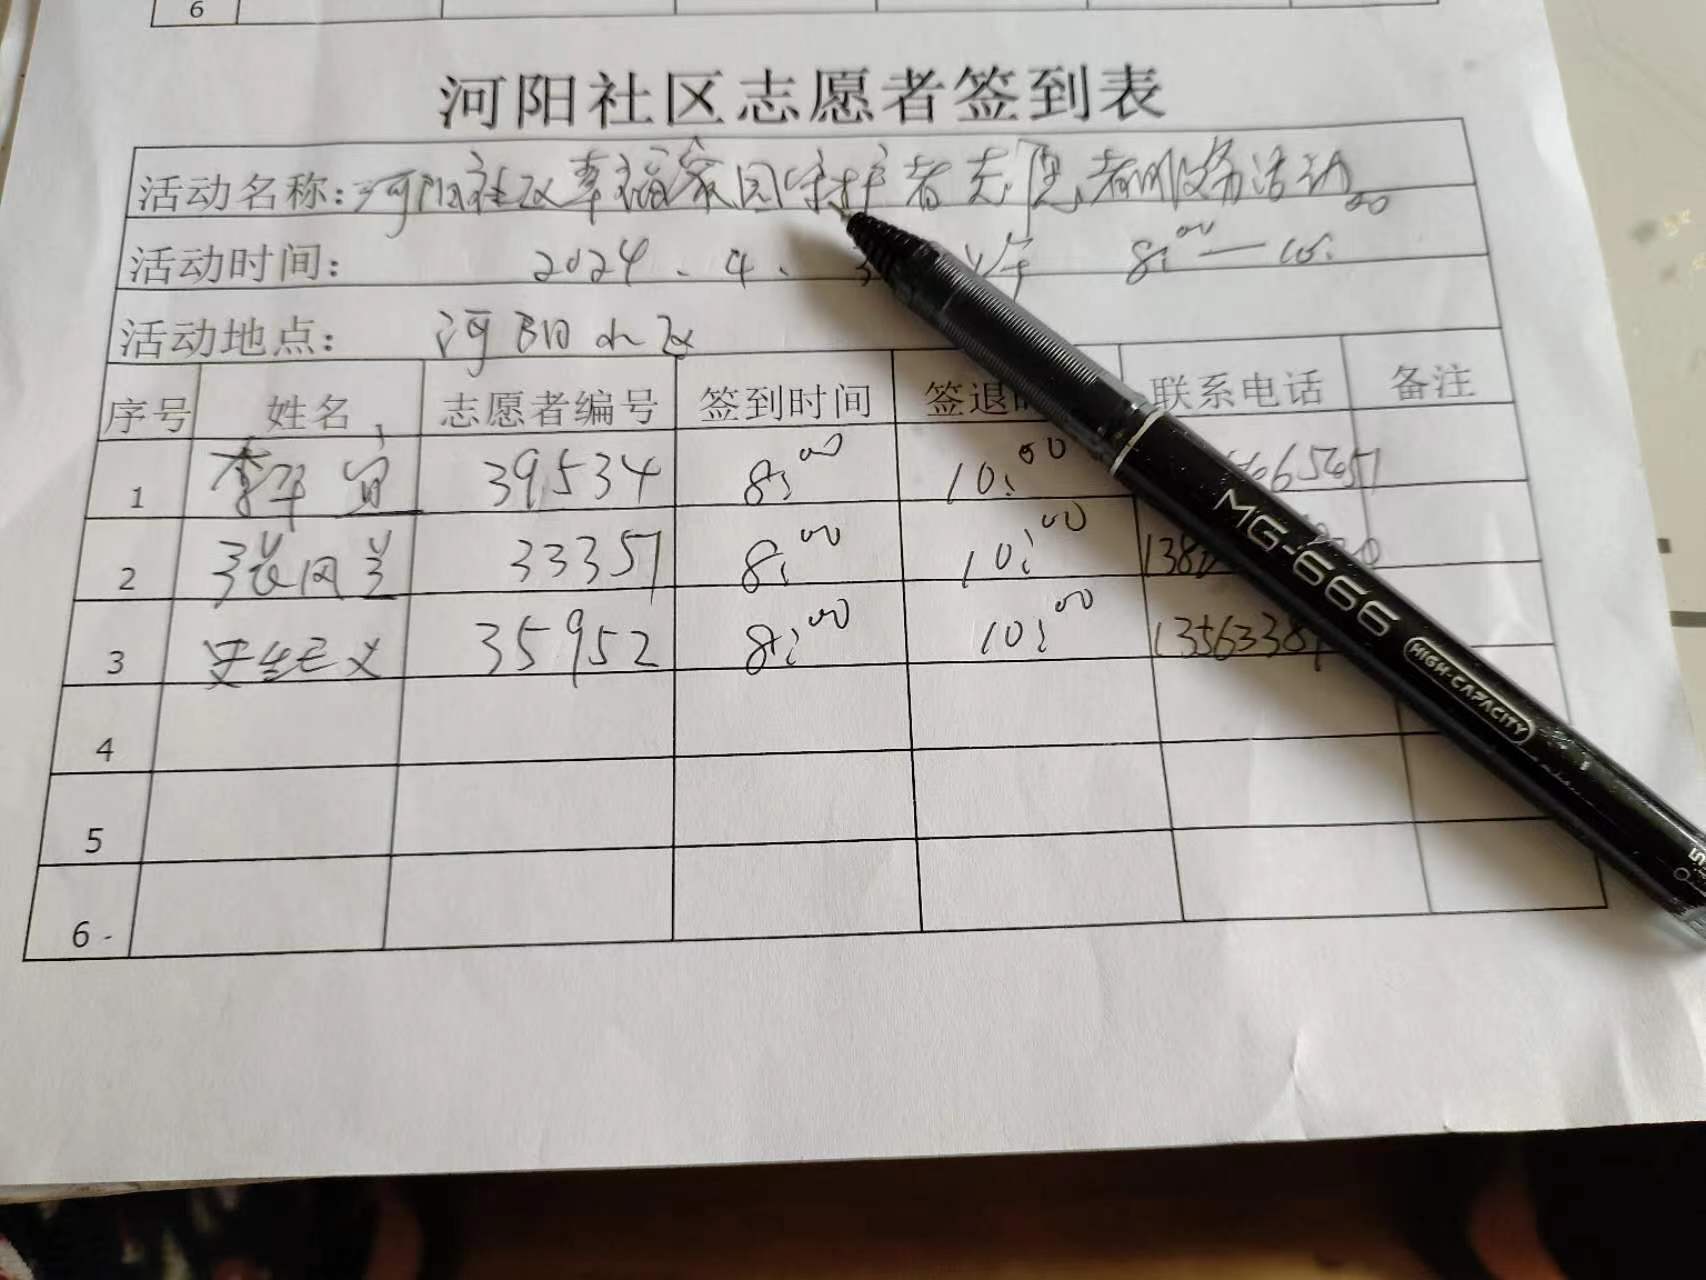 6
河阳社区志愿者签到表
活动名称:河阳社区幸福家园守护者志愿者服务活动
活动时间: 2024.4. 上午 8:00—10:00
活动地点: 河阳小区
序号 姓名 志愿者编号 签到时间 签退 联系电话 备注
1 39534 8:00 10:00
2 33357 8:00 10:00
3 35952 8:00 10:00 1356338
4
5
6
MG-666 HIGH-CAPACITY